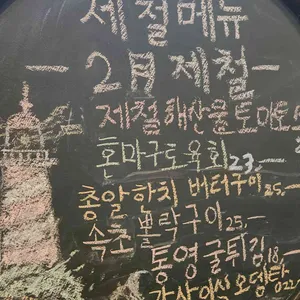 제철메뉴
-2月제철-
제철해산물토마토
혼마구로육회 23.-
총알한치 버터구이 25.-
속초 볼락구이 25.-
통영굴튀김 18.-
오뎅탕 22